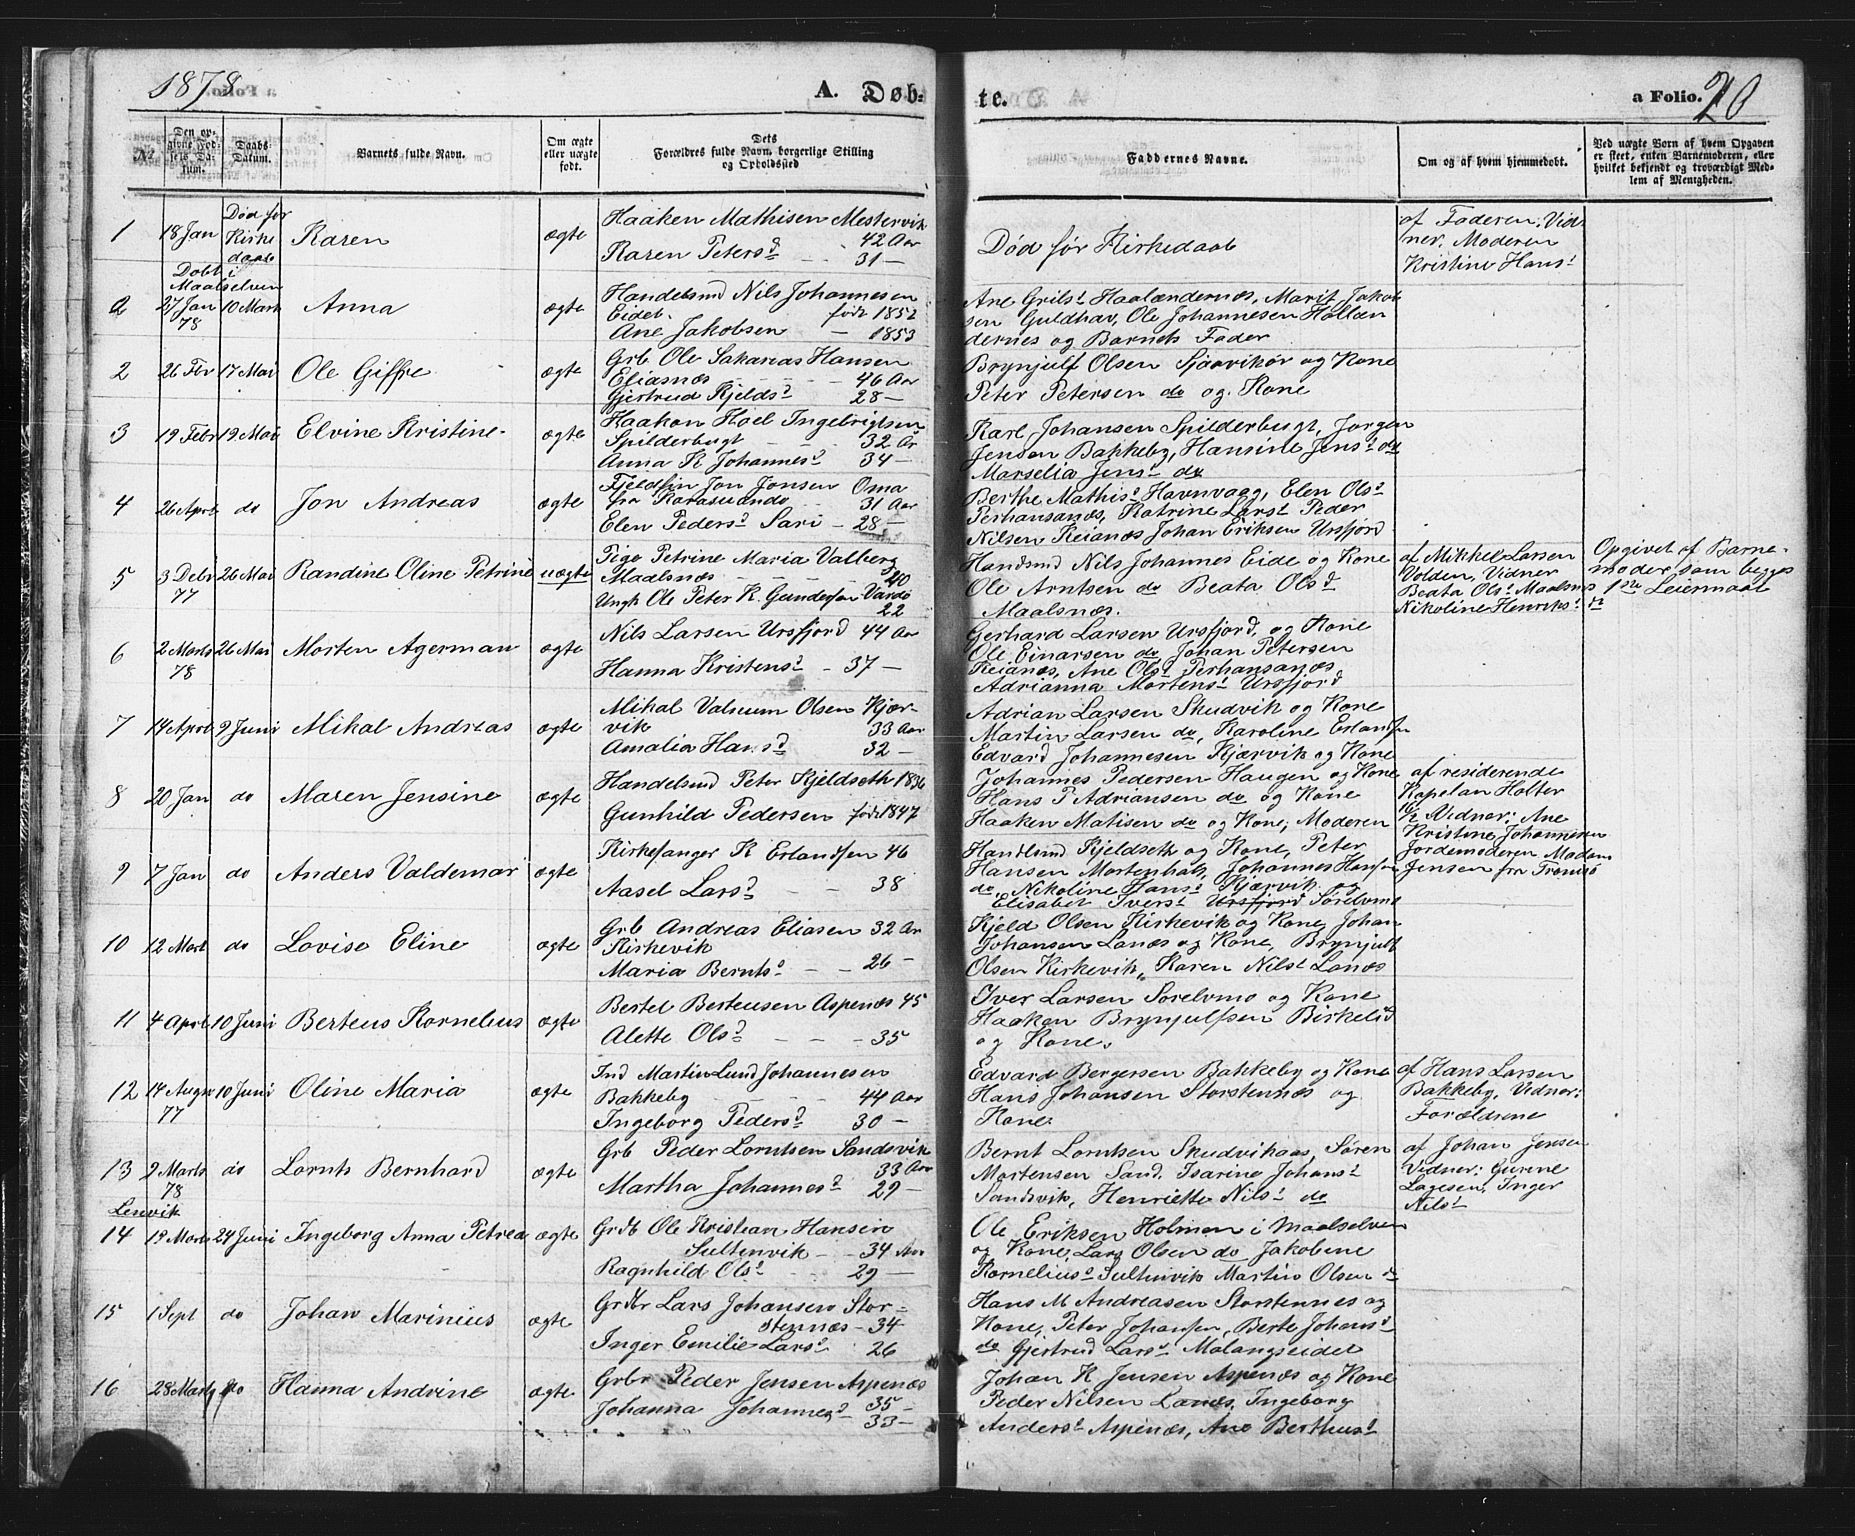 1878
A. Døb-
te.
a Folio. 20
№
Den op-
givne Fød-
sels Da-
tum.
Daabs
Datum.
Barnets fulde Navn.
Om ægte
eller uægte
født.
Dets
Forældres fulde Navn, borgerlige Stilling
og Opholdssted
Faddernes Navne.
Om og af hvem hjemmedøbt.
Ved uægte Børn af hvem Opgaven
er skeet, enten Barnemoderen, eller
hvilket bekjendt og troværdigt Med-
lem af Menigheden.
1 18 Jan Død før
Kirke
daab
Karen ægte
Haaken Mathisen Mestervik
42 Aar
Karen Petersd 31 —
Død før Kirkedaab
af Faderen. Vid-
ner. Moderen
Kristine Hans
Døbt i
Maalselven
2 27 Jan
78
10 Marts Anna ægte
Handelsmd Nils Johannesen
Eidet. født 1852
Ane Jakobsen — 1853
Ane Grilsd Haalændernæs, Marit Jakob
sen Guldhav, Ole Johannesen Hollæn
dernes og Barnets Fader
2 26 Fbr 17 Mai Ole Giffre ægte
Grb Ole Sakarias Hansen
Eliasnæs 46 Aar
Gjertrud Kjeldsd 28 —
Brynjulf Olsen Sjaavikør og Kone
Peter Petersen do og Kone
3 19 Febr 19 Mai Elvine Kristine ægte
Haakon Hoel Ingebrigtsen
Spilderbugt 32 Ar
Anna K Johannesd 34 —
Karl Johansen Spilderbugt, Jørgen
Jensen Bakkeby, Hansine Jensd do
Marselia Jensd do
4 26 Aprl do Jon Andreas ægte
Fjeldfin Jon Jonsen Oma
fra Karasuando 31 Aar
Elen Pedersd Sari — 28 —
Berthe Mathisd Havnvaag, Elen Olsd
Perhansanæs, Katrine Larsd Peder
Nilsen Reianæs Johan Eriksen Ursfjord
5 3 Debr
77
26 Mai Randine Oline Petrine uægte
Pige Petrine Maria Valberg
Maalsnæs 20
Ungk Ole Peter K. Gundersen Vardø
22
Handsmd Nils Johannes Eide og Kone
Ole Arntsen do Beata Olsd
Maalsnæs.
af Mikkel Larsen
Volden, Vidner
Beata Olsd Maalsnæs
Nikoline Henriksd do
Opgivet af Barne-
moder som begges
1ste Leiermaal
6 2 Marts
78
26 Mai Morten Agerman ægte
Nils Larsen Ursfjord 44 Aar
Hanna Kristensd - 37 —
Gerhard Larsen Ursfjord, og Kone
Ole Einarsen do Johan Petersen
Reianæs, Ane Olsd Perhansanæs
Adrianna Mortensd Ursfjord
7 14 Aprl 9 Juni Mikal Andreas ægte
Mikal Valseum Olsen Kjær-
vik 33 Aar
Amalia Hansd 32 —
Adrian Larsen Skudvik og Kone
Martin Larsen do, Karoline Erlandsen
Edvard Johannesen Kjærvik og Kone
8 20 Jan do Maren Jensine ægte
Handelsmd Peter Kjeldseth 1836
Gunhild Pedersen født 1847
Johannes Pedersen Haugen og Kone
Hans P Adriansen do og Kone
Haaken Matisen do og Kone, Moderen
af residerende
Kapelan Holter
Vidner: Ane
Kristine Johannesen
Jordemoderen Madam
Jensen fra Tromsø
9 7 Jan do Anders Valdemar ægte
Kirkesanger K Erlandsen 46
Aasel Larsd 38
Handlsmd Kjeldseth og Kone, Peter
Hansen Mortenhals, Johannes Hansen
do, Nikoline Hansd Kjærvik og
Elisabet Iversd Ursfjord Sørelvmo
10 12 Mart do Lovise Eline ægte
Grb Andreas Eliasen 32 Ar
Kirkevik
Maria Berntsd 26 —
Kjeld Olsen Kirkevik og Kone Johan
Johansen Lanæs og Kone, Brynjulf
Olsen Kirkevik, Karen Nilsd Lanæs
11 4 April 10 Juni Berteus Kornelius ægte
Bertel Berteusen Aspenæs 45
Alette Olsd 35
Iver Larsen Sørelvmo og Kone
Haaken Brynjulfsen Birkelid
og Kone.
12 14 Augu
77
10 Juni Oline Maria ægte
Ind Martin Lund Johannesen
Bakkeby 44 Aar
Ingeborg Pedersd 30 —
Edvard Bergersen Bakkeby og Kone
Hans Johansen Storstennæs og
Kone.
af Hans Larsen
Bakkeby, Vidner:
Forældrene
13 2 Marts
78
do Lornts Bernhard ægte
Grb Peder Lorntsen Sandsvik
33 Aar
Martha Johannesd 29 —
Bernt Lorntsen Skudvikaas, Søren
Mortensen Sand. Isarine Johansd
Sandsvik, Henriette Nilsd do
af Johan Jensen
Vidner: Gurine
Lagesen, Inger
Nilsd
Lenvik
14 19 Marts 24 Juni Ingeborg Anna Petrea ægte
Grdb Ole Kristian Hansen
Sultenvik 34 Aar
Ragnhild Olsd 29 —
Ole Eriksen Holmen i Maalselven
og Kone, Lars Olsen do Jakobine
Korneliusd Sultenvik Martin Olsen do
15 1 Sept do Johan Marinius ægte
Grdbr Lars Johansen Stor-
stennæs - 34
Inger Emilie Larsd 26
Hans M Andreasen Storstennes og
Kone, Peter Johansen, Berte Johansd
do Gjertrud Larsd Malangseidet
16 28 Marts do Hanna Andrine ægte
Grbr Peder Jensen Aspenæs
35 —
Johanna Johannesd 33 —
Johan K Jensen Aspenæs og Kone
Peder Nilsen Lanæs, Ingeborg
Andersd Aspenæs, Ane Berthusd